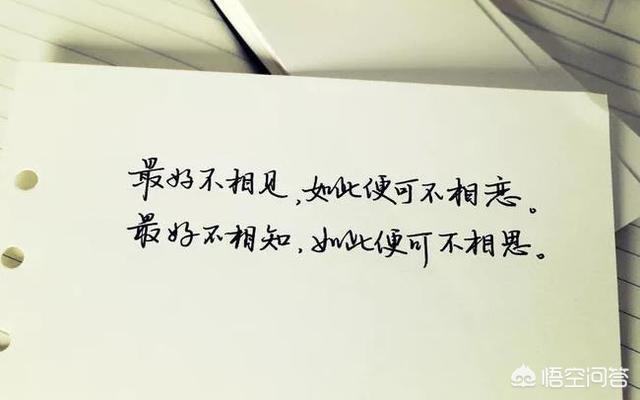 最好不相见,如此便可不相恋。
最好不相知,如此便可不相思。
悟空问答